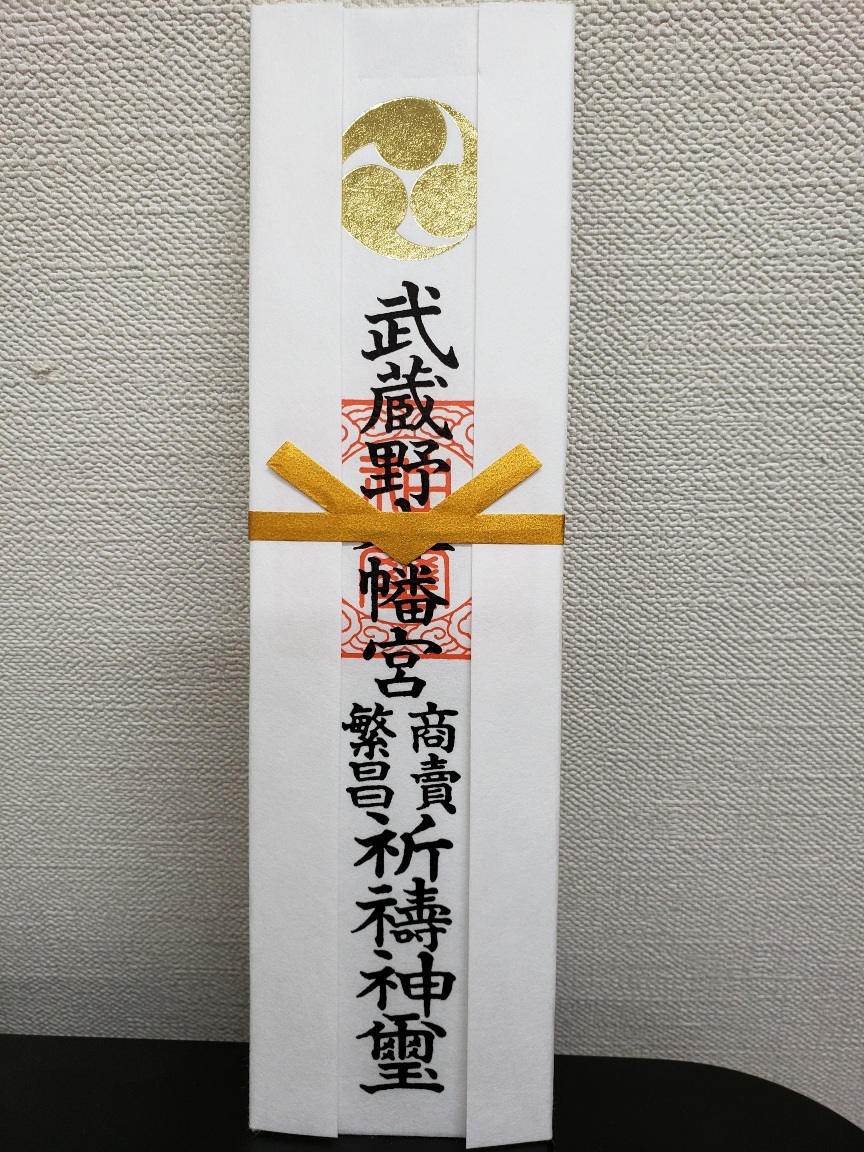 武蔵野八幡宮
商賣
繁昌
祈禱神璽